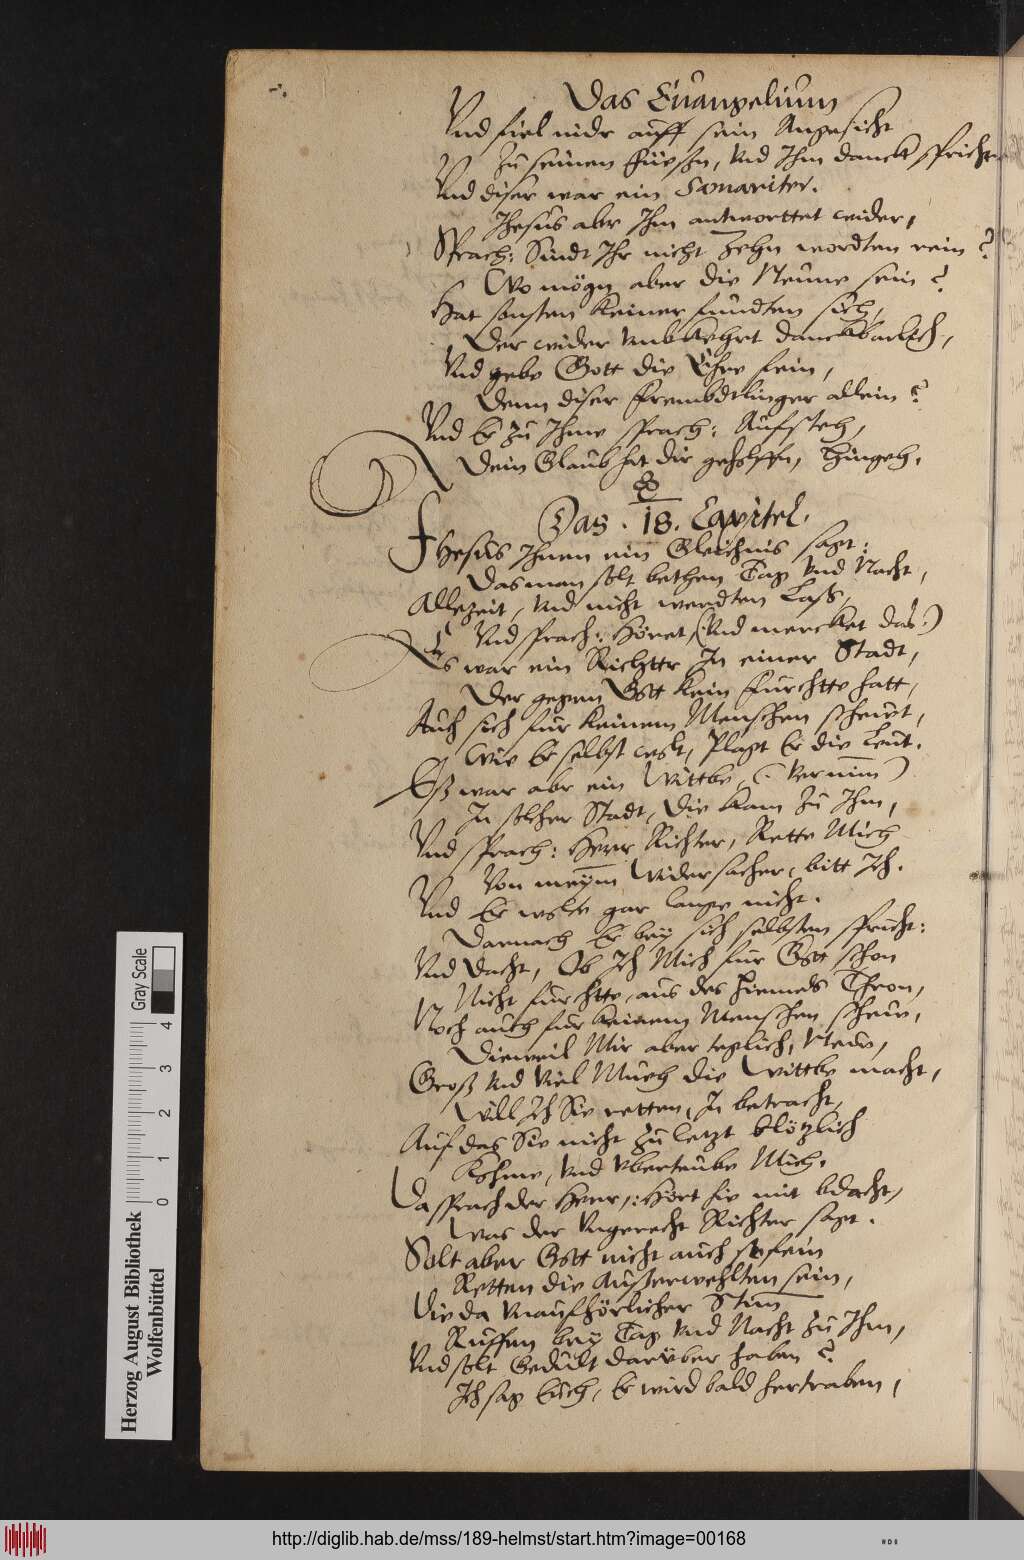 Das Euangelium
Vnd fiel nidr auff sein Angesicht
Zu seinen Füeßn, Vnd Ihm danckt spricht
Vnd diser war ein Samariter.
Ihesus abr Ihm antworttet wider,
Sprach: Sindt Ihr nicht Zehn wordten rein?
Wo mögn aber die Neune sein?
Hat sonsten Keiner fundten sich,
Der wider vmbkehrt danckbarlich,
Vnd gebe Gott die Ehre sein,
Denn diser frembdtlinger allein?
Vnd Er zu Ihme sprach: Aufsteh,
Dein Glaub hat dir geholffn, Hingeh.
Das . 18. Capitel.
Ihesus Ihnen ein Gleichnis sagt:
Das man solt bethen Tag Vnd Nacht,
Allezeit, Vnd nicht werdten Lass,
Vnd sprach: Höret, (Vnd mercket das:)
Es war ein Richttr In einer Stadt,
Der gegen Gott Kein furchtte hatt,
Auch sich fur Keinem Menschen scheut,
Wie Er selbst wolt, Plagt Er die Leut.
Eß war abr ein Wittbe, (: Vernim)
In solcher Stadt, Die Kam zu Ihm,
Vnd sprach: Herr Richter, Rette Mich
Von meym Widersacher, bitt Ich.
Vnd Er wolte gar lange nicht.
Darnach Er bey sich selbsten spricht:
Vnd dacht, Ob Ich Mich fur Gott schon
Nicht furchtte, aus des Himels Thron,
Noch auch fur keinem Menschen scheue,
Dieweil Mir aber teglich, Neue,
Groß Vnd Viel Mueh die Wittbe macht,
Will Ich Sie retten, In betracht,
Auf das Sie nicht zu letzt Plötzlich
Kohme, Vnd Vberteube Mich.
Da sprach der Herr,: Hört hie mit bdacht,
Was der Vngerecht Richter sagt.
Solt aber Gott nicht auch so fein
Retten die Außerwehlten sein,
Die da Vnaufhörlicher Stim
Ruffen bey Tag Vnd Nacht zu Ihm,
Vnd solt Gedult darüber haben?
Ich sag Euch, Er wird bald hertraben,
Gray Scale
0 1 2 3 4
Herzog August Bibliothek
Wolfenbüttel
http://diglib.hab.de/mss/189-helmst/start.htm?image=00168